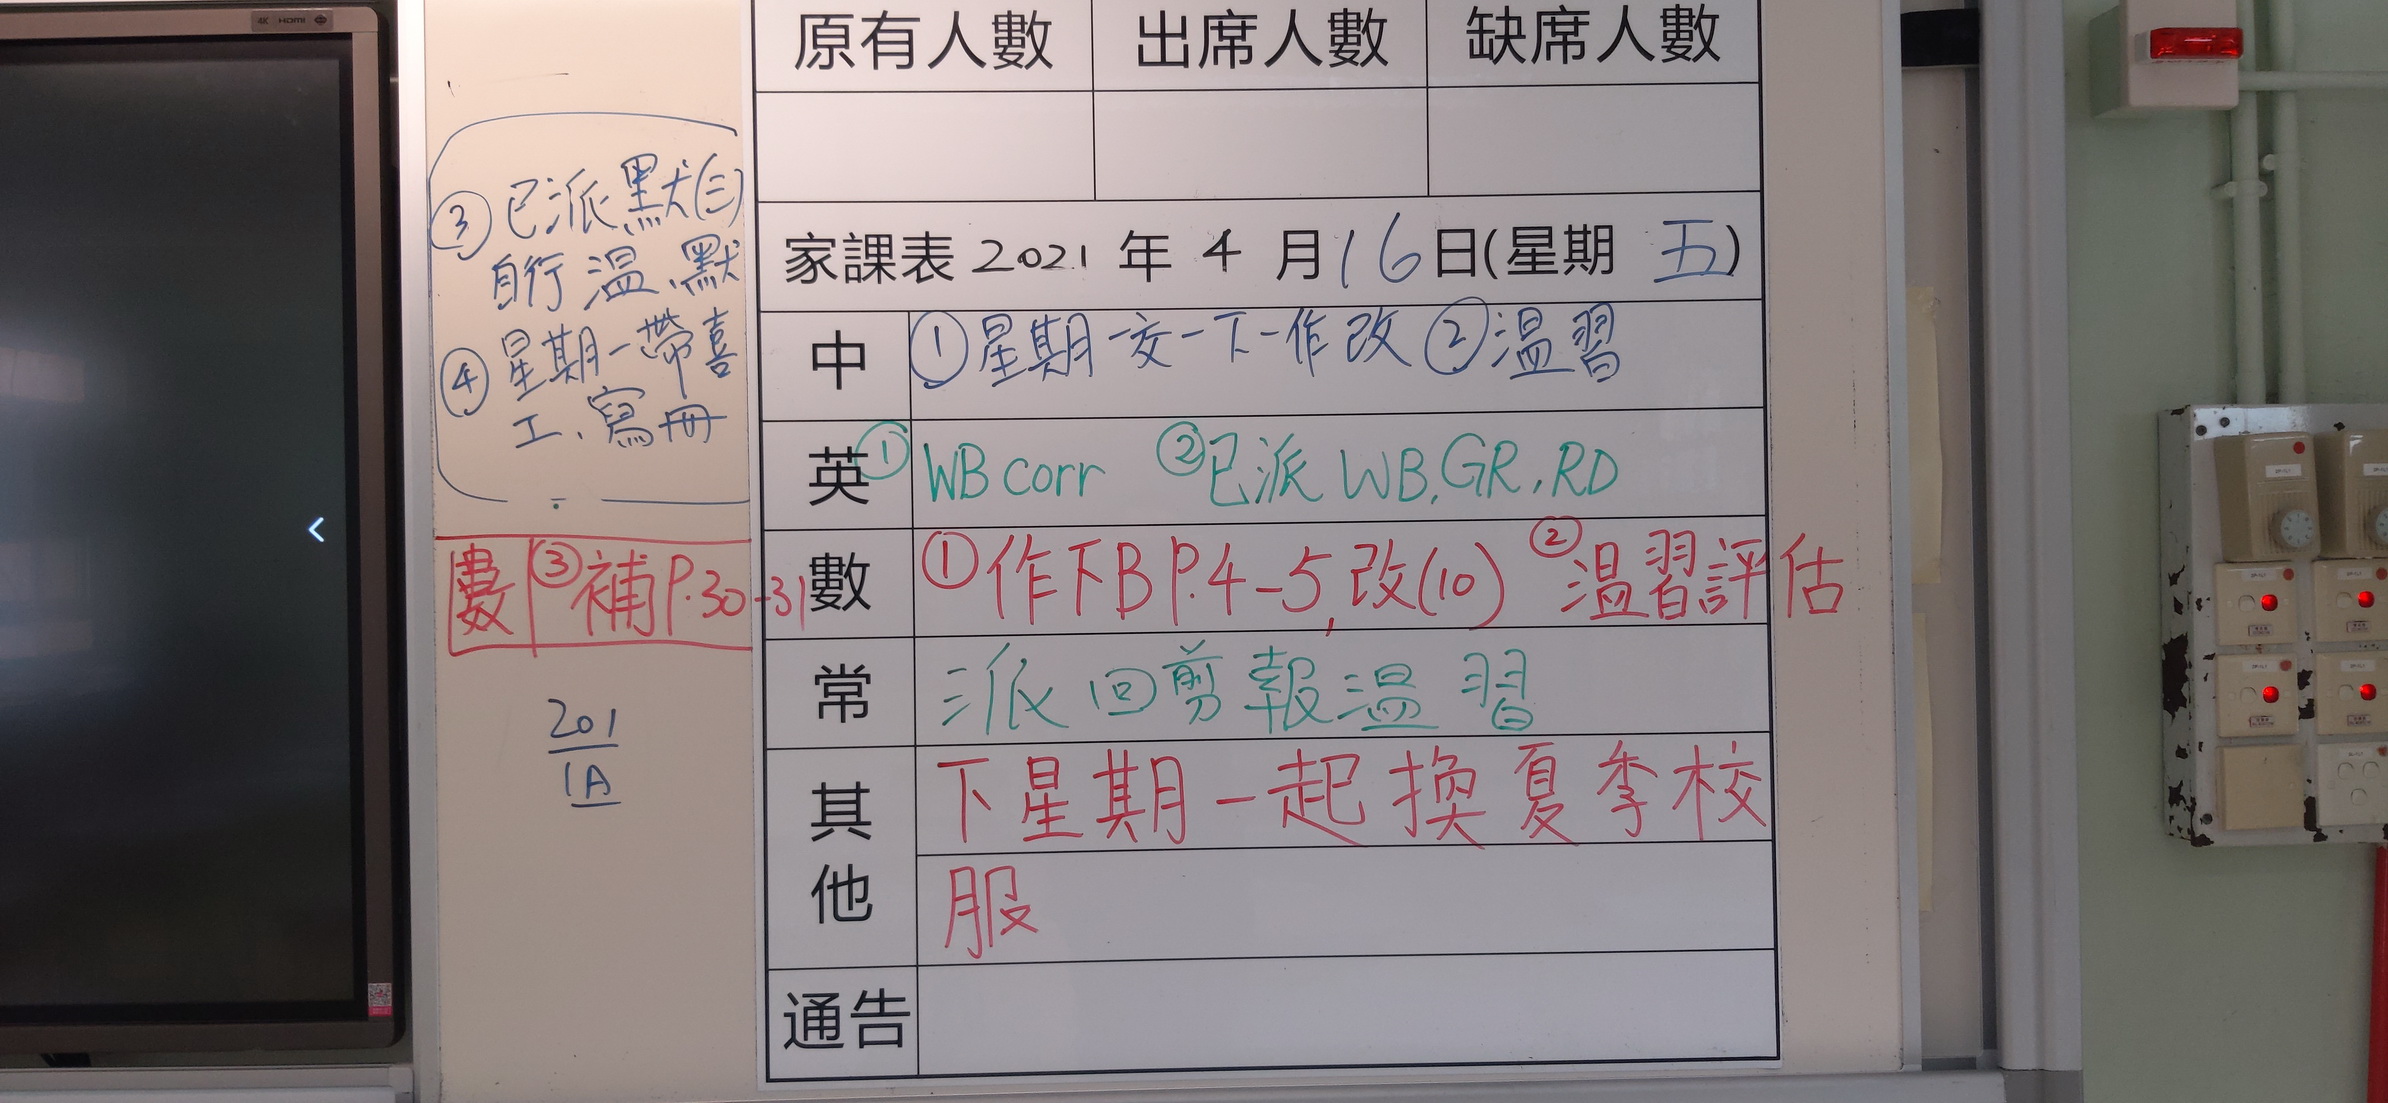 4K HDMI
原有人數 出席人數 缺席人數
家課表 2021 年 4 月 16 日(星期 五)
中 ①星期一交一下一作改 ②溫習
③已派默(三)
自行溫、默
④星期一帶喜
工、寫冊
英 ①WB corr ②已派 WB, GR, RD
數 ①作下B P.4-5, 改(10) ②溫習評估
數 ③補P.30-31
常 派回剪報溫習
其他 下星期一起換夏季校
服
通告
201
1A